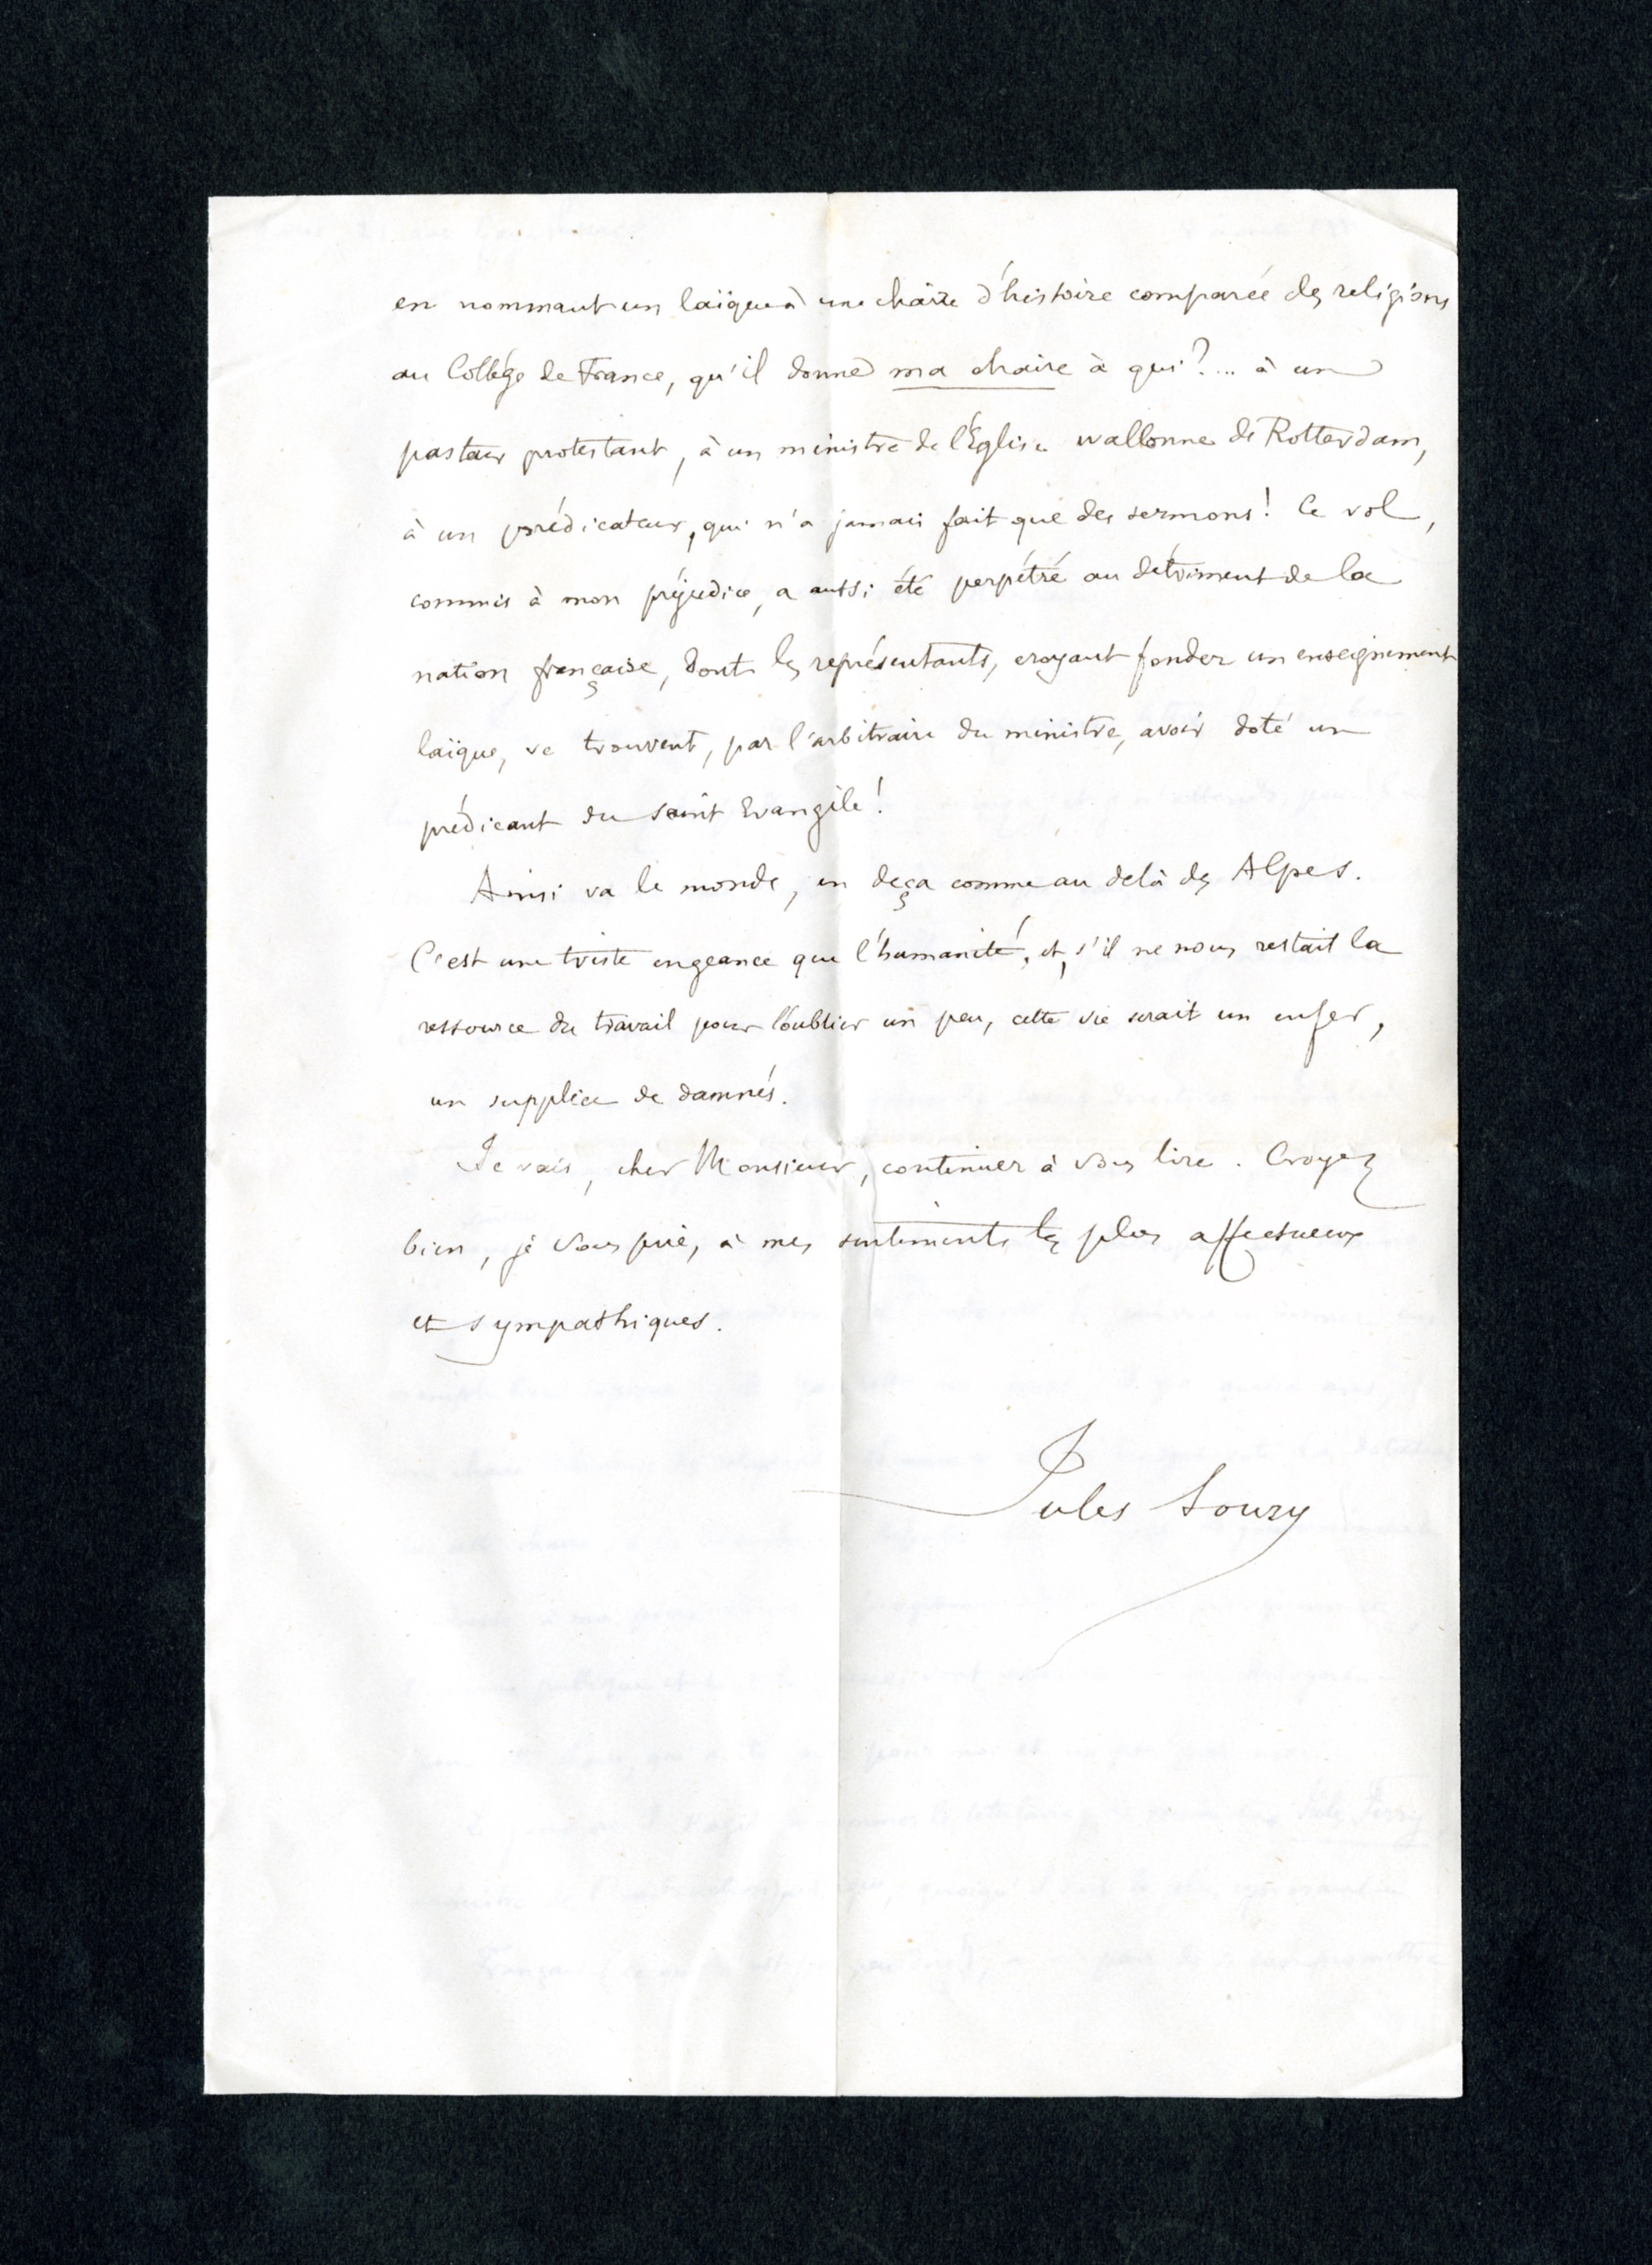 en nommant un laïque à une chaire d'histoire comparée des religions
au Collège de France, qu'il donne ma chaire à qui?... à un
pasteur protestant, à un ministre de l'Église wallonne de Rotterdam,
à un prédicateur, qui n'a jamais fait que des sermons! Ce vol,
commis à mon préjudice, a aussi été perpétré au détriment de la
nation française, dont les représentants, croyant fonder un enseignement
laïque, se trouvent, par l'arbitraire du ministre, avoir doté un
prédicant du saint Evangile!
Ainsi va le monde, en deça comme au delà des Alpes.
C'est une triste engeance que l'humanité, et, s'il ne nous restait la
ressource du travail pour l'oublier un peu, cette vie serait un enfer,
un supplice de damnés.
Je vais, cher Monsieur, continuer à vous lire. Croyez
bien, je vous prie, à mes sentiments les plus affectueux
et sympathiques.
Jules Soury